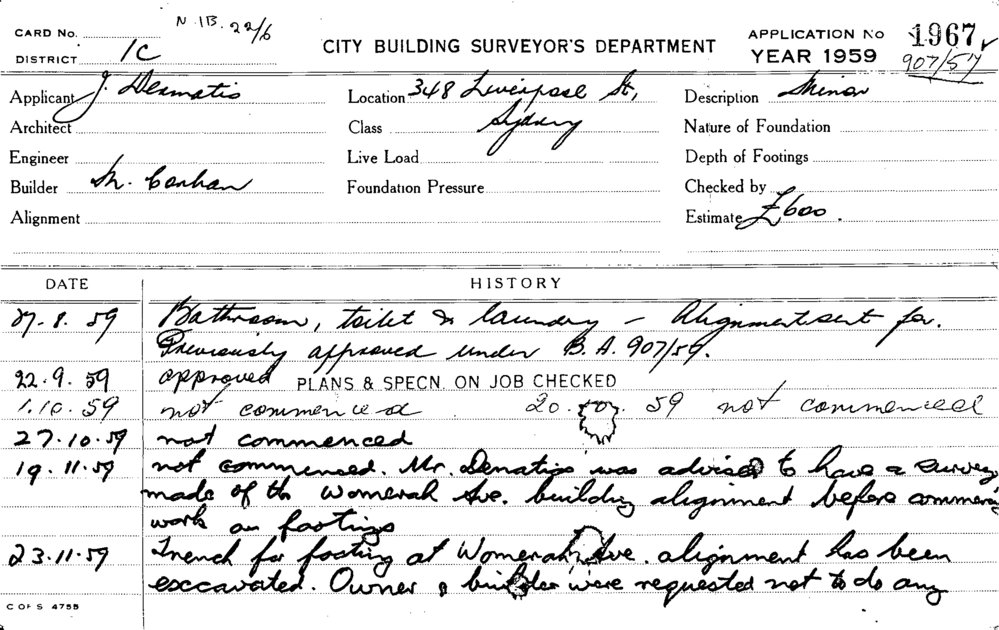 N.IB. 22/6
CARD No.
DISTRICT 1C
CITY BUILDING SURVEYOR'S DEPARTMENT
APPLICATION No 1967
YEAR 1959 907/57
Applicant J. Dematis Location 348 Liverpool St, Description Minor
Architect Class Sydney Nature of Foundation
Engineer Live Load Depth of Footings
Builder M. Foundation Pressure Checked by
Alignment Estimate £600.
DATE HISTORY
27.8.59 Bathroom, toilet & laundry – Alignment sent for.
Previously approved under B.A. 907/59.
22.9.59 approved PLANS & SPECN. ON JOB CHECKED
1.10.59 not commenced 20.10.59 not commenced
27.10.59 not commenced
19.11.59 not commenced. Mr. Denatis was advised to have a survey
made of th Womerah Ave. building alignment before commencing
work on footings
23.11.59 Trench for footing at Womerah Ave. alignment has been
exccavated. Owner & builder were requested not to do any
C OF S 4755